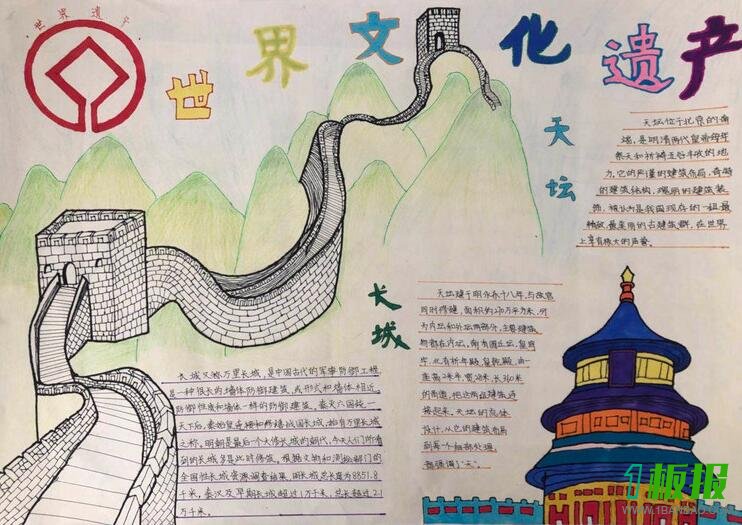 世界遗产
世界文化遗产
天坛
天坛位于北京的南
端,是明清两代皇帝每年
祭天和祈祷五谷丰收的地
方,它的严谨的建筑布局,奇特
的建筑结构,瑰丽的建筑装
饰,被认为是我国现存的一组最
精致,最美丽的古建筑群,在世界
上享有极大的声誉。
长城
天坛建于明永乐十八年,与故宫
同时修建,面积约270万平方米,分
为内坛和外坛两部分,主要建筑
物都在内坛,南有圜丘坛、皇穹
宇,北有祈年殿、皇乾殿,由一
座高2米半,宽28米,长360米
的甬道,把这两组建筑连
接起来,天坛的总体
设计,从它的建筑布局
到每一个细部处理
都强调了“天”。
长城又称万里长城,是中国古代的军事防御工程
是一种很长的墙体防御建筑,或形式和墙体相近,
防御性质和墙体一样的防御建筑。秦灭六国统一
天下后,秦始皇连接和修缮战国长城,始有万里长城
之称。明朝是最后一个大修长城的朝代,今天人们所看
到的长城多是此时修筑。根据文物和测绘部门的
全国性长城资源调查结果,明长城总长度为8851.8
千米,秦汉及早期长城超过1万千米,总长超过2.1
万千米。
1板报
WWW.1BANBAO.COM